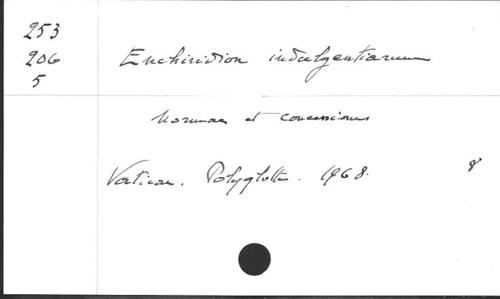 253
206
5
Enchiridion indulgentiarum
Normae et concessiones
Vatican. Polyglotte. 1968. 8